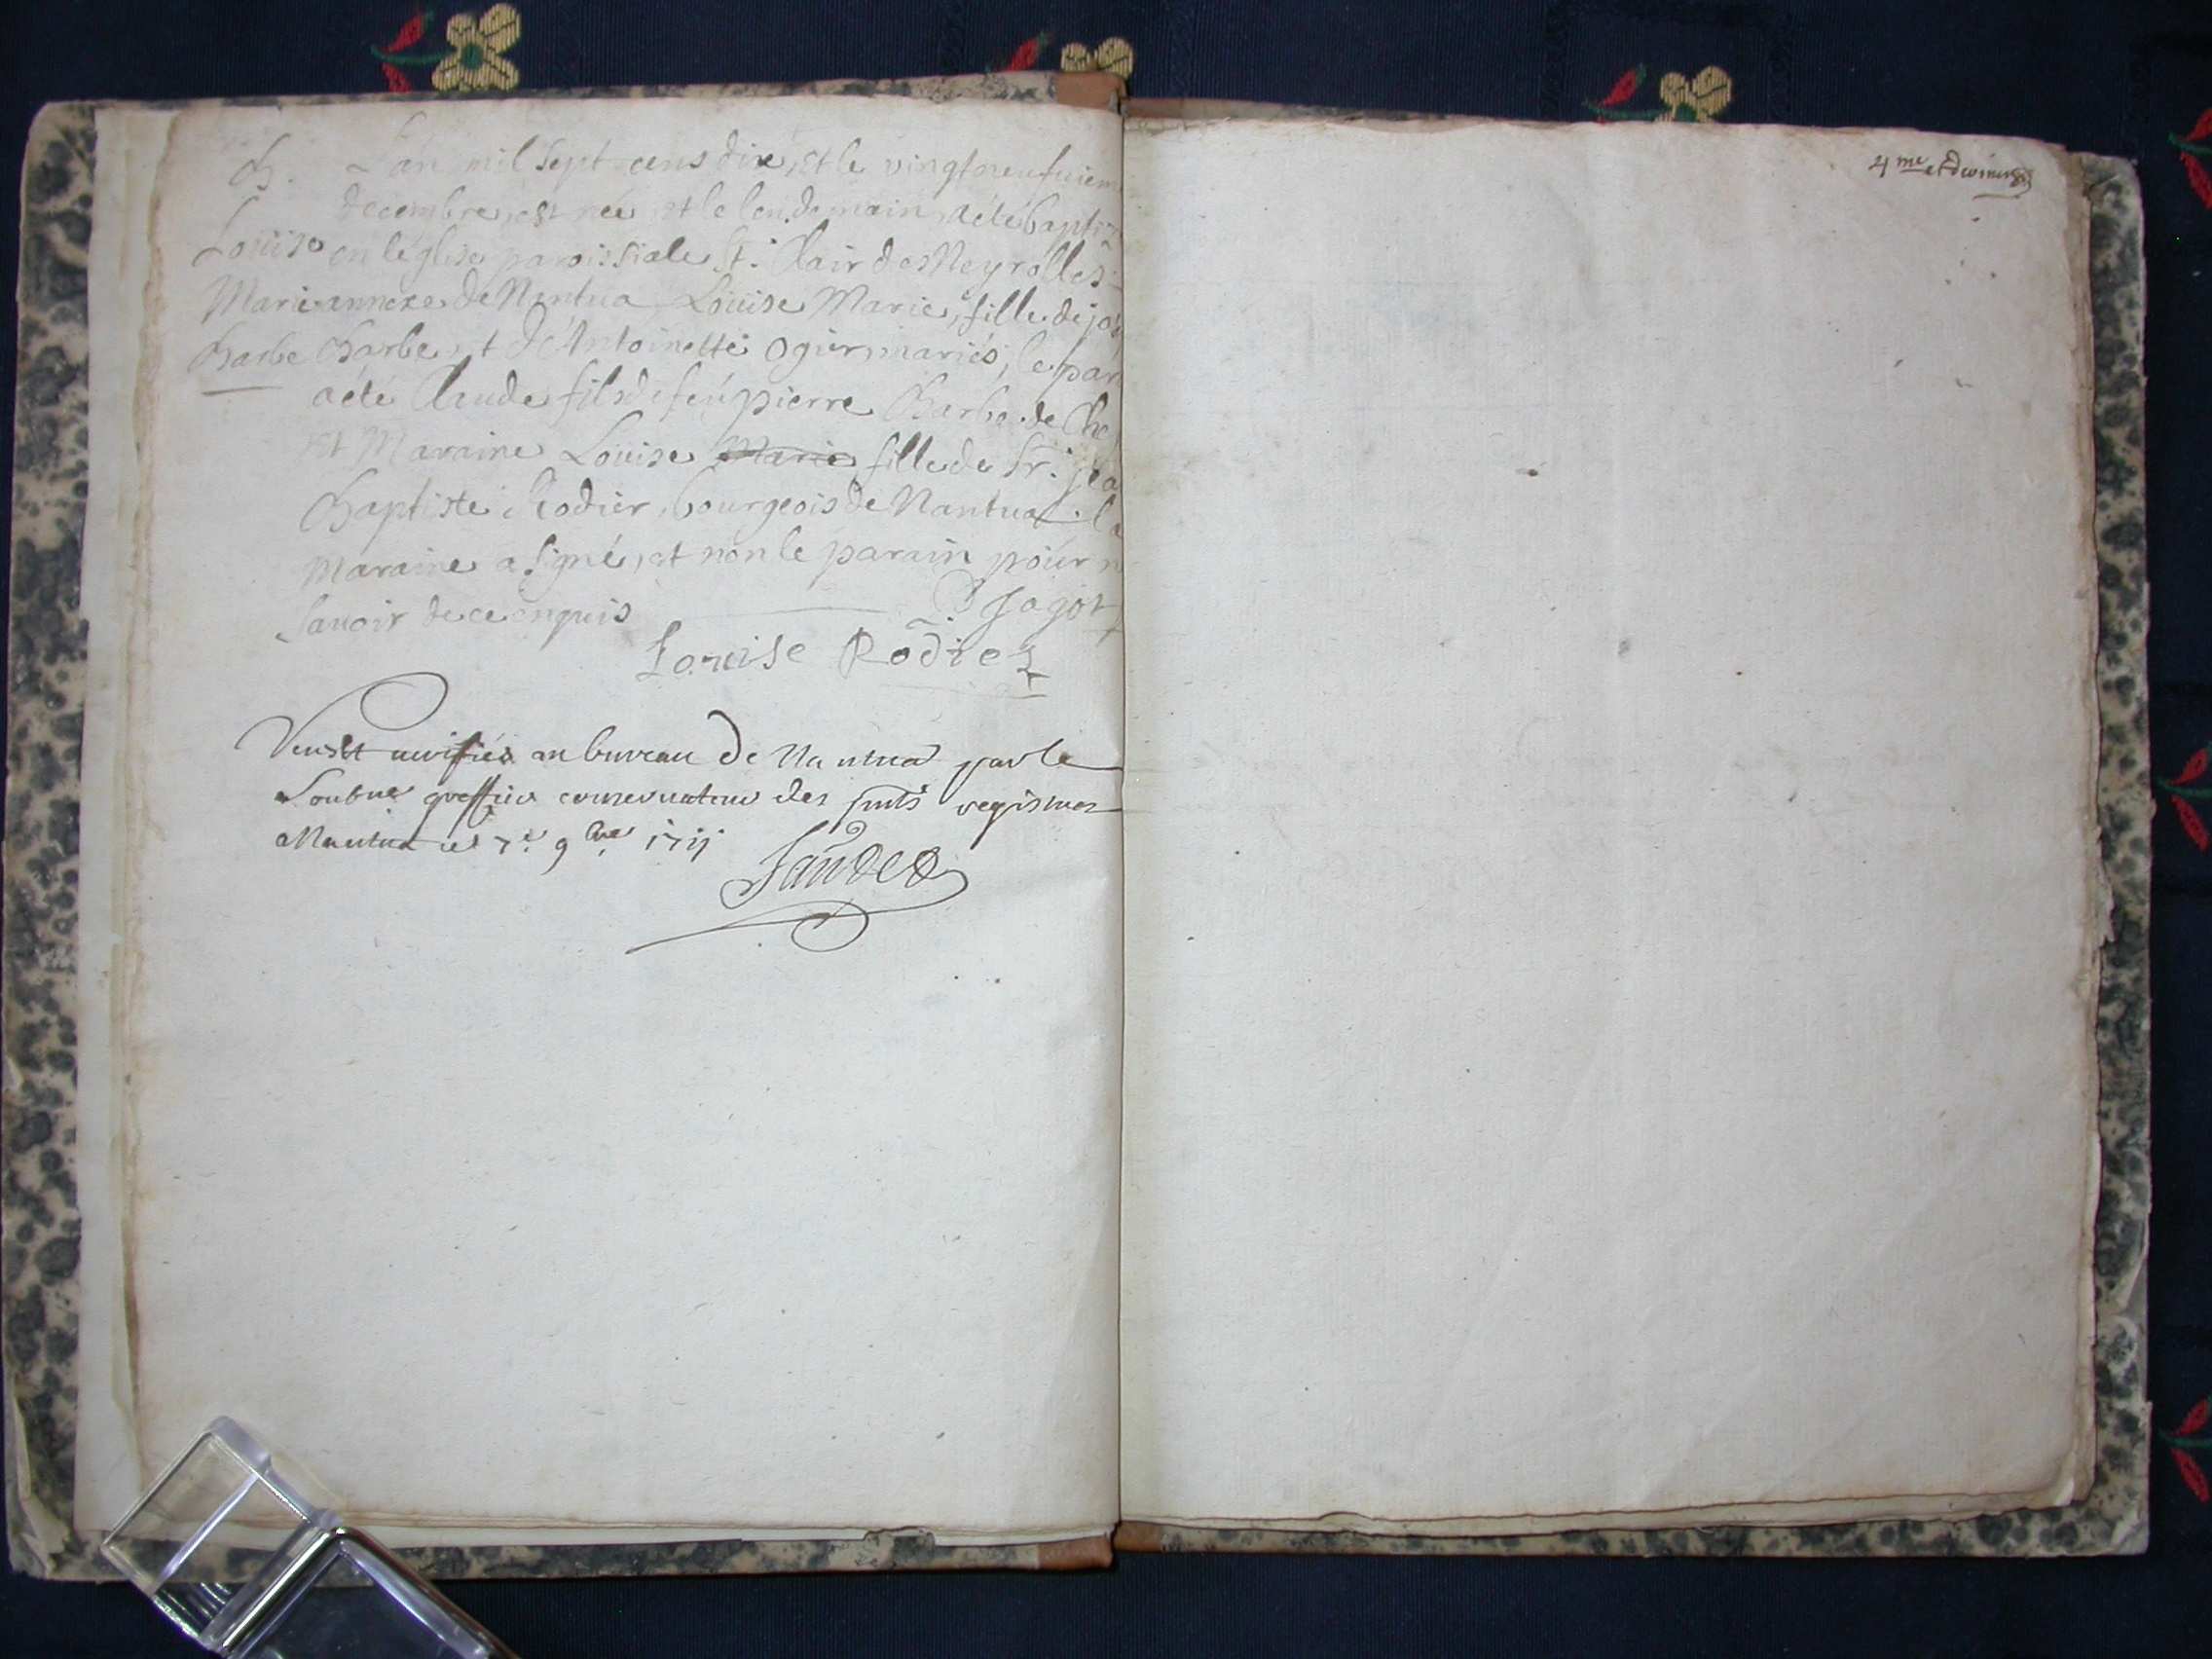 B. L'an mil sept cens dix, et le vingtneufuiem
decembre, est née et le lendemain, a été baptiz
Louise en l'églize paroissiale St. Clair des Neyrolles
Marie annexe de Nantua, Louise Marie, fille de jo
Barbe Barbe, et d'Antoinette Ogier, mariés, le par
a été Claude fils de feu pierre Barbe de Che
et Maraine Louise Marie fille de Sr. jea
Baptiste Rodier, bourgeois de Nantua. la
Maraine a signé, et non le parain pour n
savoir de ce enquis Jagot
Louise Rodier
Veu et verifiés au bureau de Nantua par le
Soubné greffier conservateur des pnts registres
a Nantua ce 7e. 9bre 1711
4me et derniere